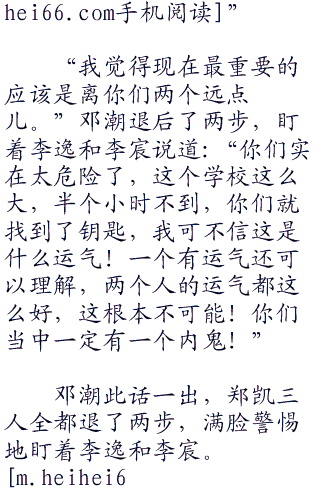 hei66.com手机阅读]”
“我觉得现在最重要的
应该是离你们两个远点
儿。”邓潮退后了两步，盯
着李逸和李宸说道：“你们实
在太危险了，这个学校这么
大，半个小时不到，你们就
找到了钥匙，我可不信这是
什么运气！一个有运气还可
以理解，两个人的运气都这
么好，这根本不可能！你们
当中一定有一个内鬼！”
邓潮此话一出，郑凯三
人全都退了两步，满脸警惕
地盯着李逸和李宸。
[m.heihei6